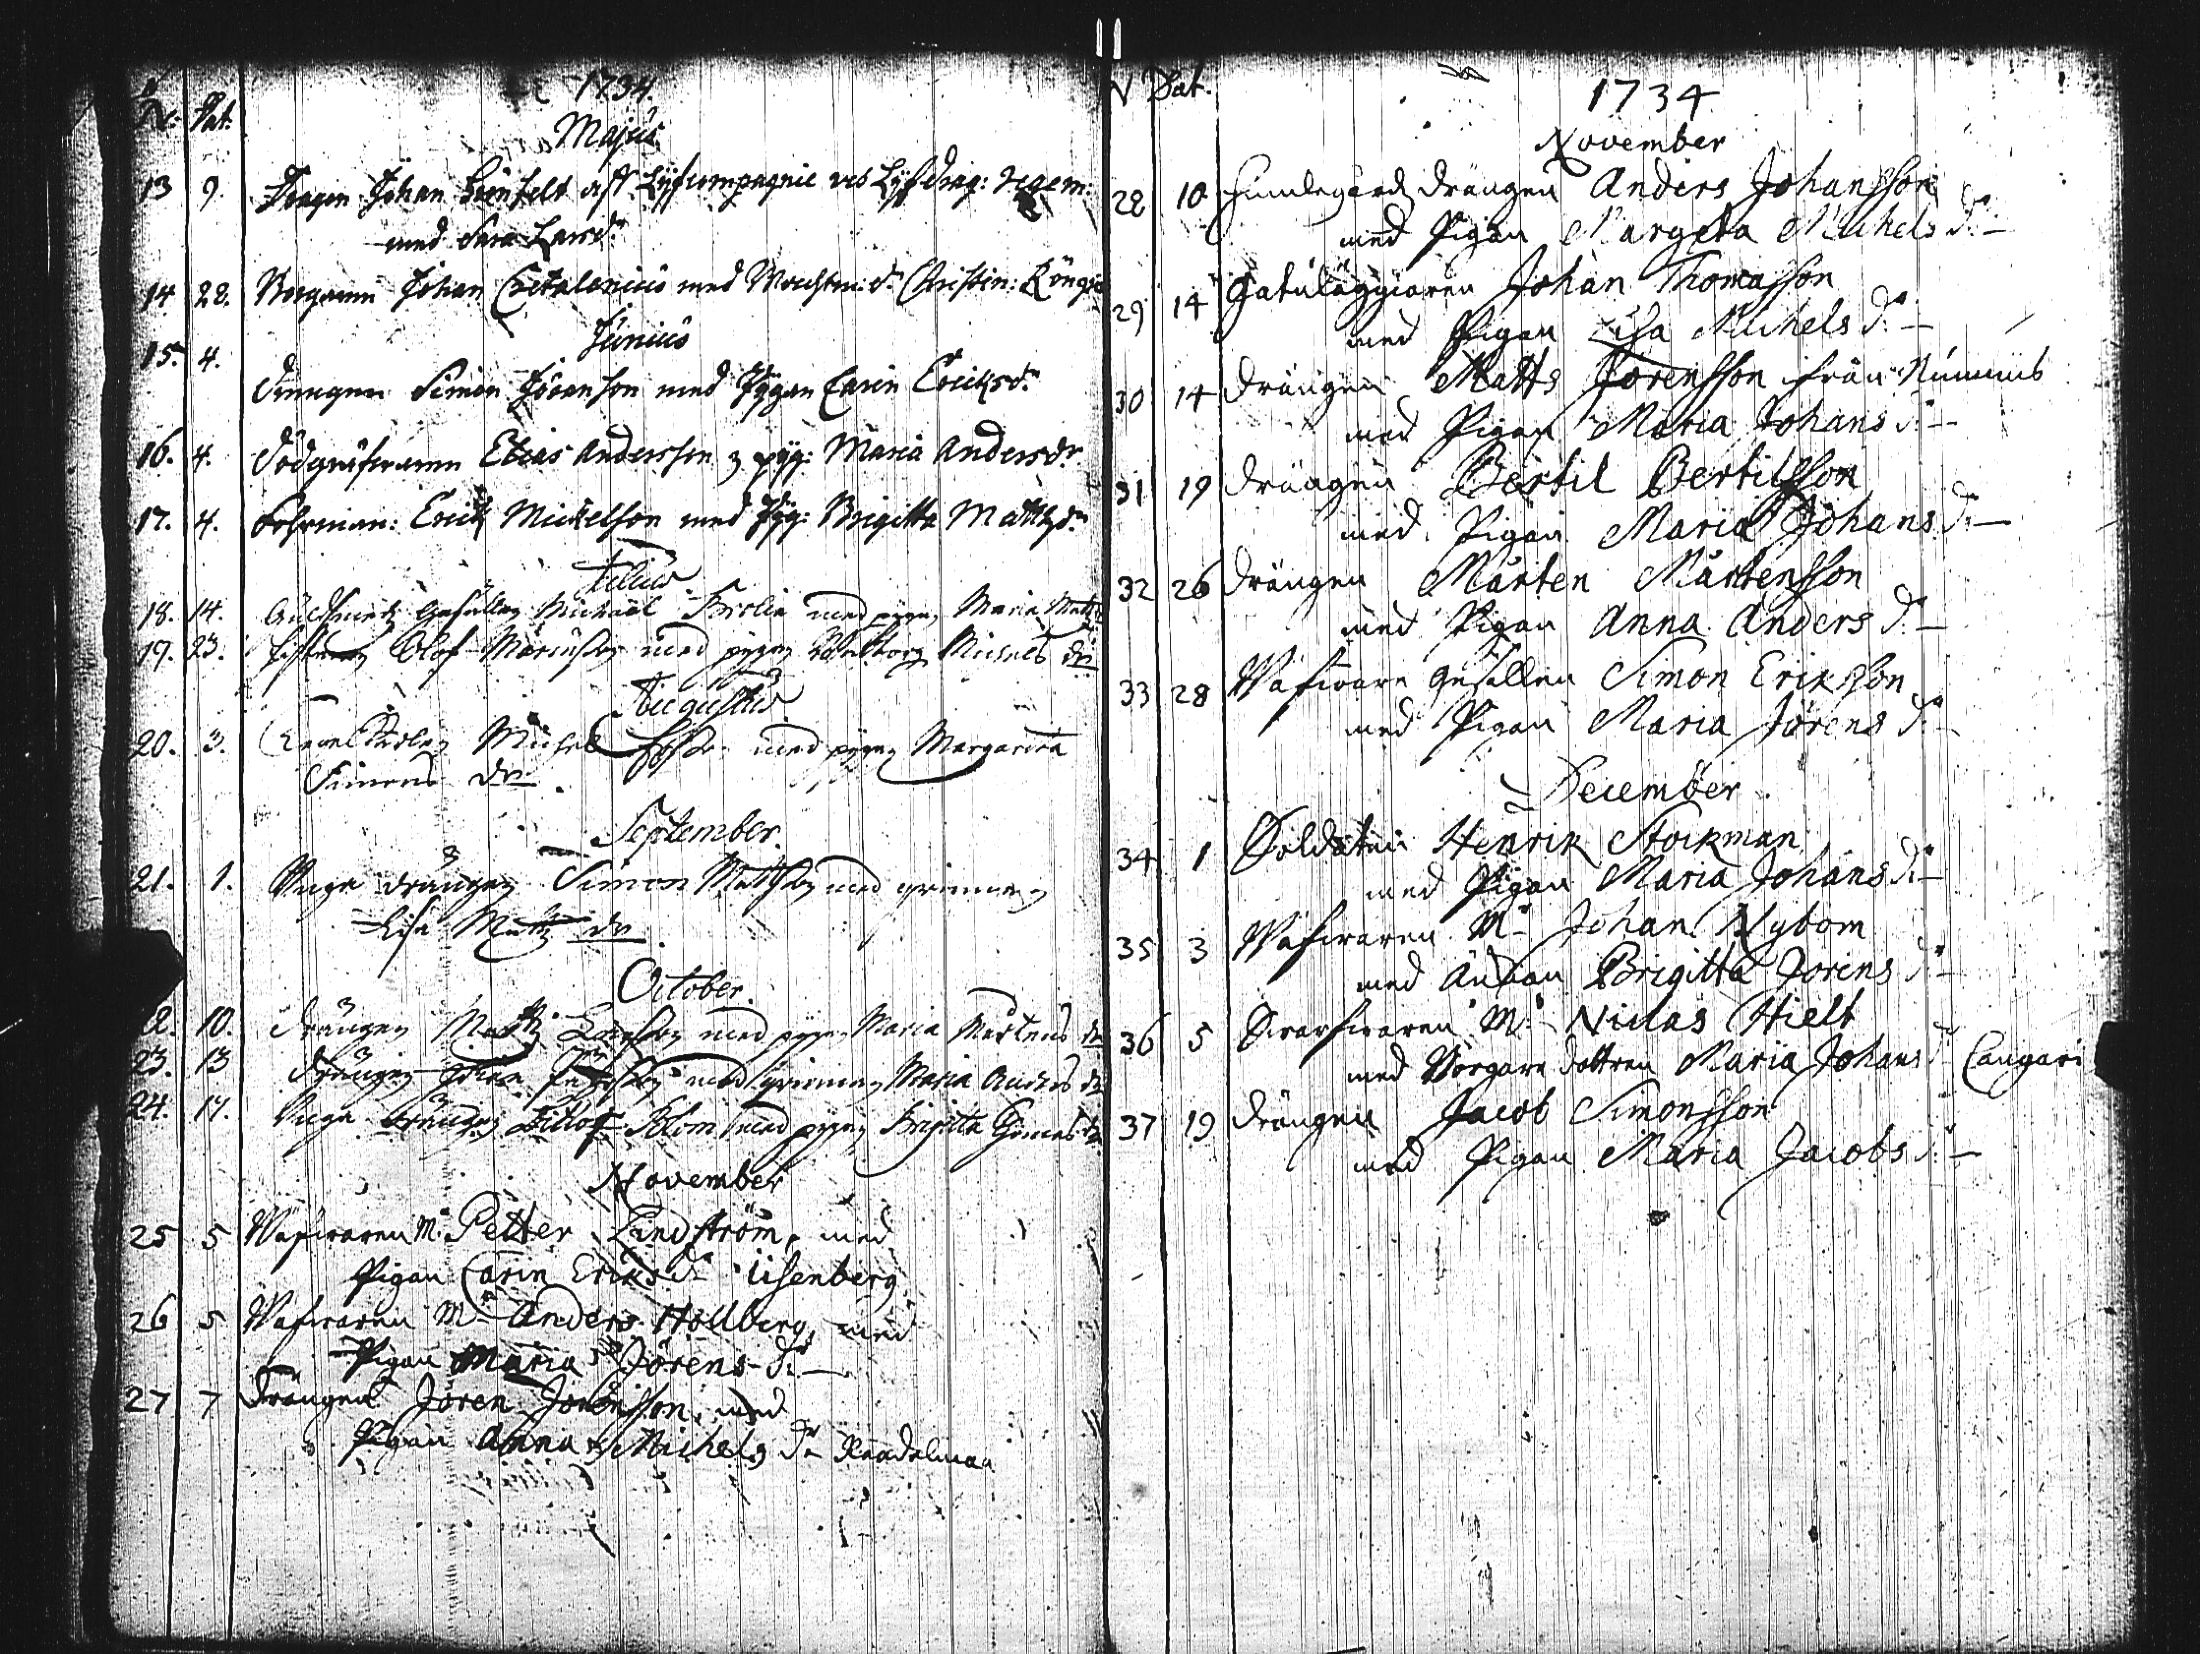 N. Dat. 1734.
Majus
13 9. Dragon Johan Grönfelt aff Lyfcompagnie ves Lyf drag: regem:
med Sara Larsdr
14 28. Borgaren Johan Cretalenius med Christin:
Junius
15. 4. Drengen Simon Jöranson med Pygan Carin Ericksdr
16. 4. Elias Andersson pyg: Maria Andersdr
17. 4. Erick Mickelson med Pyg: Brigitta Mattsdr
Julius
18. 14. Gullsmeds Gesällen Michael med pygan Maria
19. 23. Olof med pygan Walborg Michels dr
Augustus
20. 3. Michel med pygan Margareta
Simons dr
September.
21. 1. Unge drängen Simon Mattson med qvinnan
Lisa Matts dr
October.
22. 10. Drängen Matts Larsson med pygan Maria Mårtens dr
23. 13 Drängen Johan med qvinnan Maria Anders dr
24. 17. Unge drängen Blom med pygan Brigitta
November
25 5 Wäfwaren Mr Petter Lindström, med
Pigan Carin Eriks dr Usenberg
26 5 Wäfwaren Mr Anders Hollberg, med
Pigan Maria Jörens dr
27 7 Drängen Jören Jörensson, med
Pigan Anna Michels dr
N Dat. 1734
November
28 10 Humlegårds drängen Anders Johansson
med Pigan Margeta Michels dr
29 14 Gatuläggiaren Johan Thomasson
med Pigan Lisa Michels dr
30 14 Drängen Matts Jörensson från Nummis
med Pigan Maria Johans dr
31 19 Drängen Bertil Bertilsson
med Pigan Maria Johans dr
32 26 Drängen Mårten Mårtensson
med Pigan Anna Anders dr
33 28 Wäfware gesällen Simon Eriksson
med Pigan Maria Jörens dr
December
34 1 Soldaten Henrik Stockman
med Pigan Maria Johans dr
35 3 Wäfwaren Mr Johan Nybom
med Änkan Brigitta Jörens dr
36 5 Swarfwaren Mr Niclas Hielt
med Borgare dottren Maria Johans dr Cangari
37 19 Drängen Jacob Simonsson
med Pigan Maria Jacobs dr